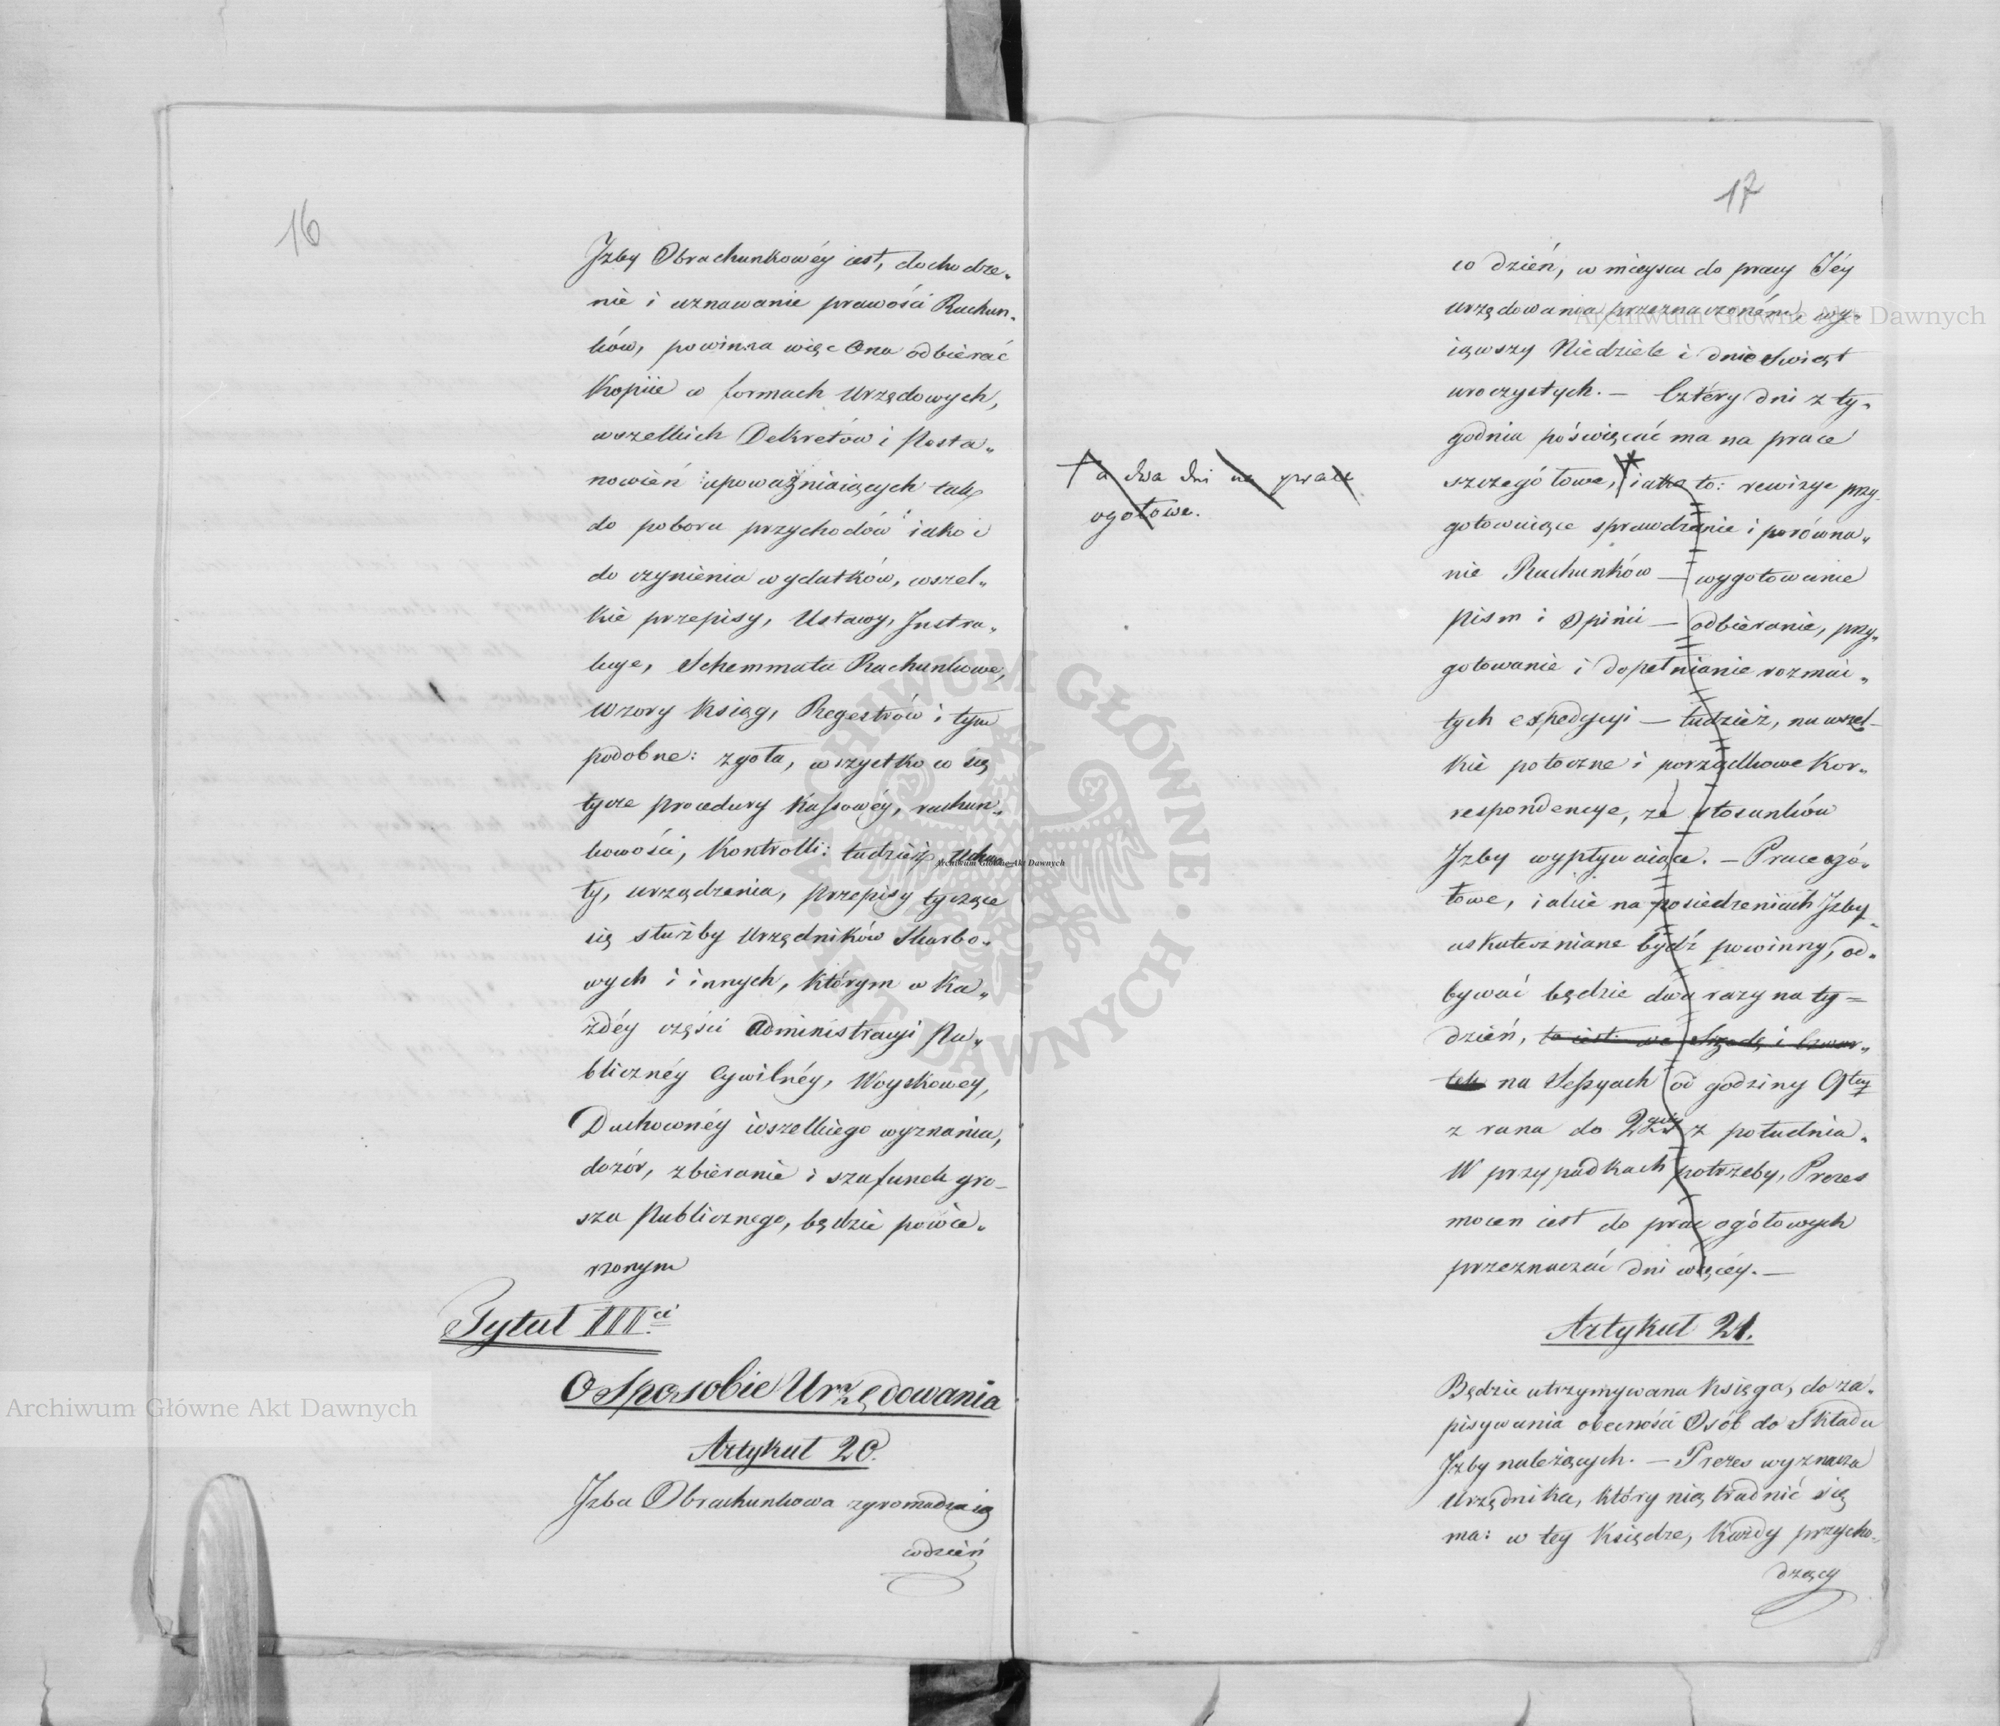 16
Jzby Obrachunkowéy iest, dochodze„
nie i uznawanie prawości Rachun„
ków, powinna więc Ona odbierać
Kopiie w formach Urzędowych,
wszelkich Dekretów i Posta„
nowień upoważniaiących tak
do poboru przychodów iako i
do czynienia wydatków, wszel„
kie przepisy, Ustawy, Jnstru„
kcye, Schemmata Rachunkowe,
wzory Ksiąg, Regestrów i tym
podobne: zgoła, wszystko co się
tycze procedury Kassowéy, rachun„
kowości, Kontrolli: tudzież, Uchwa
ły, urządzenia, przepisy tyczące
się służby Urzędników Skarbo„
wych i innych, którym w Ka„
żdéy części Administracyi Pu„
bliczney Cywilnéy, Woyskowey,
Duchownéy wszelkiego wyznania,
dozór, zbieranie i szafunek gro„
sza Publicznego, będzie powie„
rzonym
Tytuł III.ci
O sposobie Urzędowania
Artykuł 20.
Jzba Obrachunkowa zgromadza się
codzień
17
co dzień, w mieyscu do pracy Jéy
urzędowania przeznaczoném, wy„
iąwszy Niedziele i dnie Swiąt
uroczystych. — Cztéry dni z ty„
godnia poświęcać ma na prace
szczegółowe, iako to: rewizye przy„
gotowuiące sprawdzanie i porówna„
nie Rachunków — wygotowanie
Pism i Opinii — odbieranie, przy„
gotowanie i dopełnianie rozmai„
tych expedycyi — tudzież, na wszel„
kie potoczne i porządkowe Kor„
respondencye, ze stosunków
Jzby wypływaiące. — Prace ogó„
łowe, iakie na posiedzeniach Jzby
uskuteczniane bydź powinny, od„
bywać będzie dwa razy na ty=
dzień, to iest: we Srzodę i Czwar„
tek na Sessyach od godziny 9tey
z rana do 2giéy z południa.
W przypadkach potrzeby, Prezes
mocen iest do prac ogółowych
przeznaczać dni więcéy. —
† a dwa dni na prace
ogółowe.
Artykuł 21.
Będzie utrzymywana Księga, do za„
pisywania obecności Osób do Składu
Jzby należących. — Prezes wyznacza
Urzędnika, który nią trudnić się
ma: w tey Księdze, Każdy przycho„
dzący
Archiwum Główne Akt Dawnych
Archiwum Główne Akt Dawnych
Archiwum Główne Akt Dawnych
ARCHIWUM GŁÓWNE AKT DAWNYCH